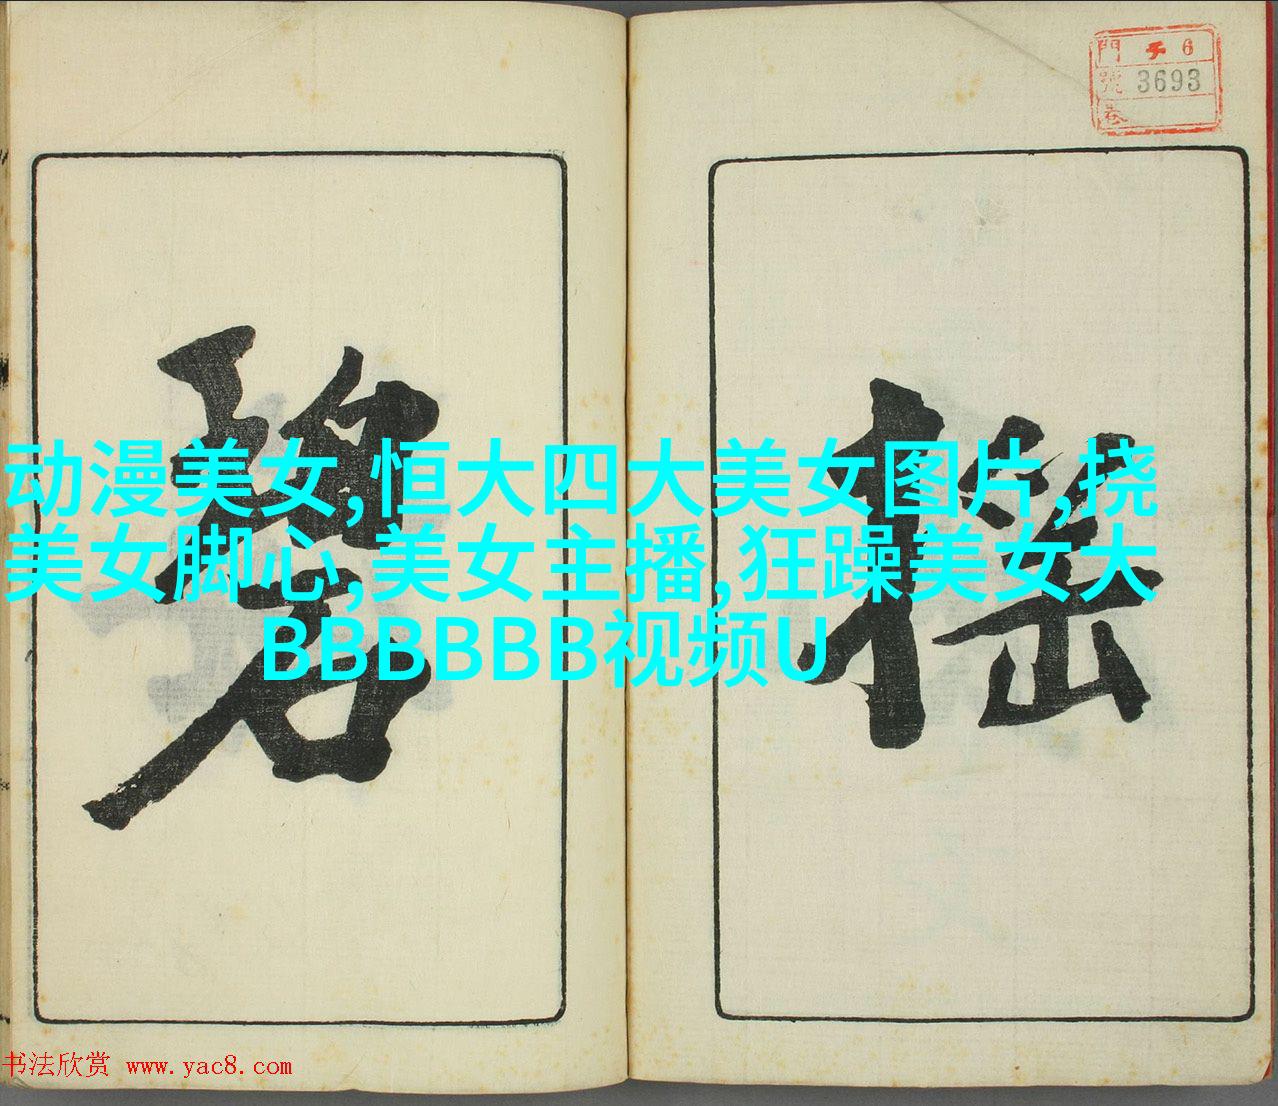 門 チ 6
號 3693
巻
搖
碧
动漫美女,恒大四大美女图片,挠
美女脚心,美女主播,狂躁美女大
BBBBBBB视频U
书法欣赏 www.yac8.com